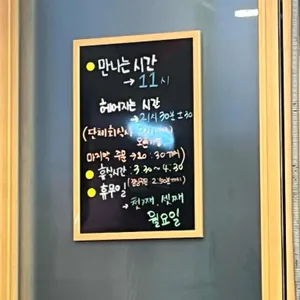 만나는 시간
→ 11시
헤어지는 시간
→ 21시 30분 ±30
(단체회식시
마지막 주문 → 20:30까지
휴식시간: 3:30~4:30
휴무일
→ 첫째. 셋째
월요일